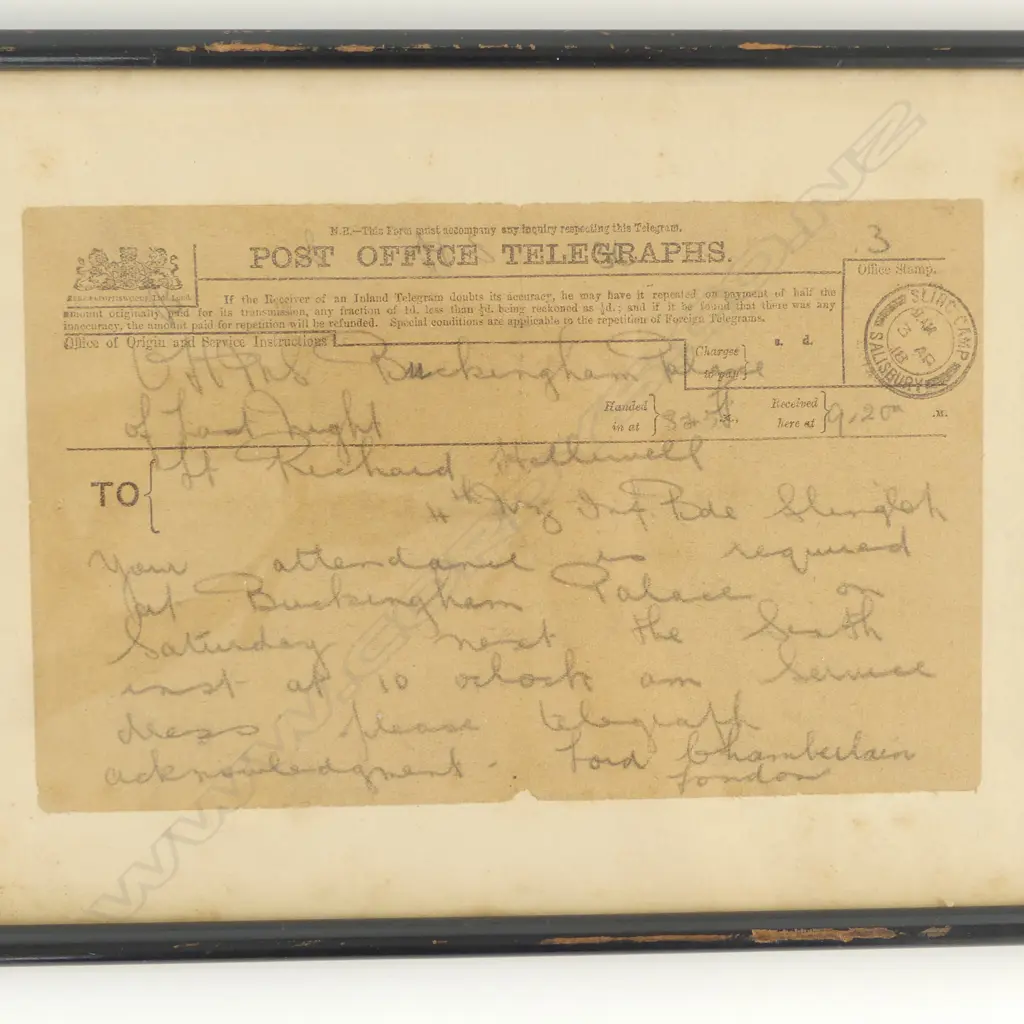 N.B.—This Form must accompany any inquiry respecting this Telegram.
POST OFFICE TELEGRAPHS.
3
Office Stamp.
If the Receiver of an Inland Telegram doubts its accuracy, he may have it repeated on payment of half the
amount originally paid for its transmission, any fraction of 1d. less than ½d. being reckoned as ½d.; and if it be found that there was any
inaccuracy, the amount paid for repetition will be refunded. Special conditions are applicable to the repetition of Foreign Telegrams.
SLING CAMP
3 AP
18
SALISBURY
Office of Origin and Service Instructions
Charges to pay
s. d.
OHMS Buckingham Palace
of Last night
Handed in at
M.,
Received here at
9.20
.M.
TO
Lt Richard Helliwell
4th NZ Inf Bde
Your attendance is required
at Buckingham Palace on
Saturday next the Sixth
inst at 10 oclock am Service
dress please telegraph
acknowledgment - Lord Chamberlain
London